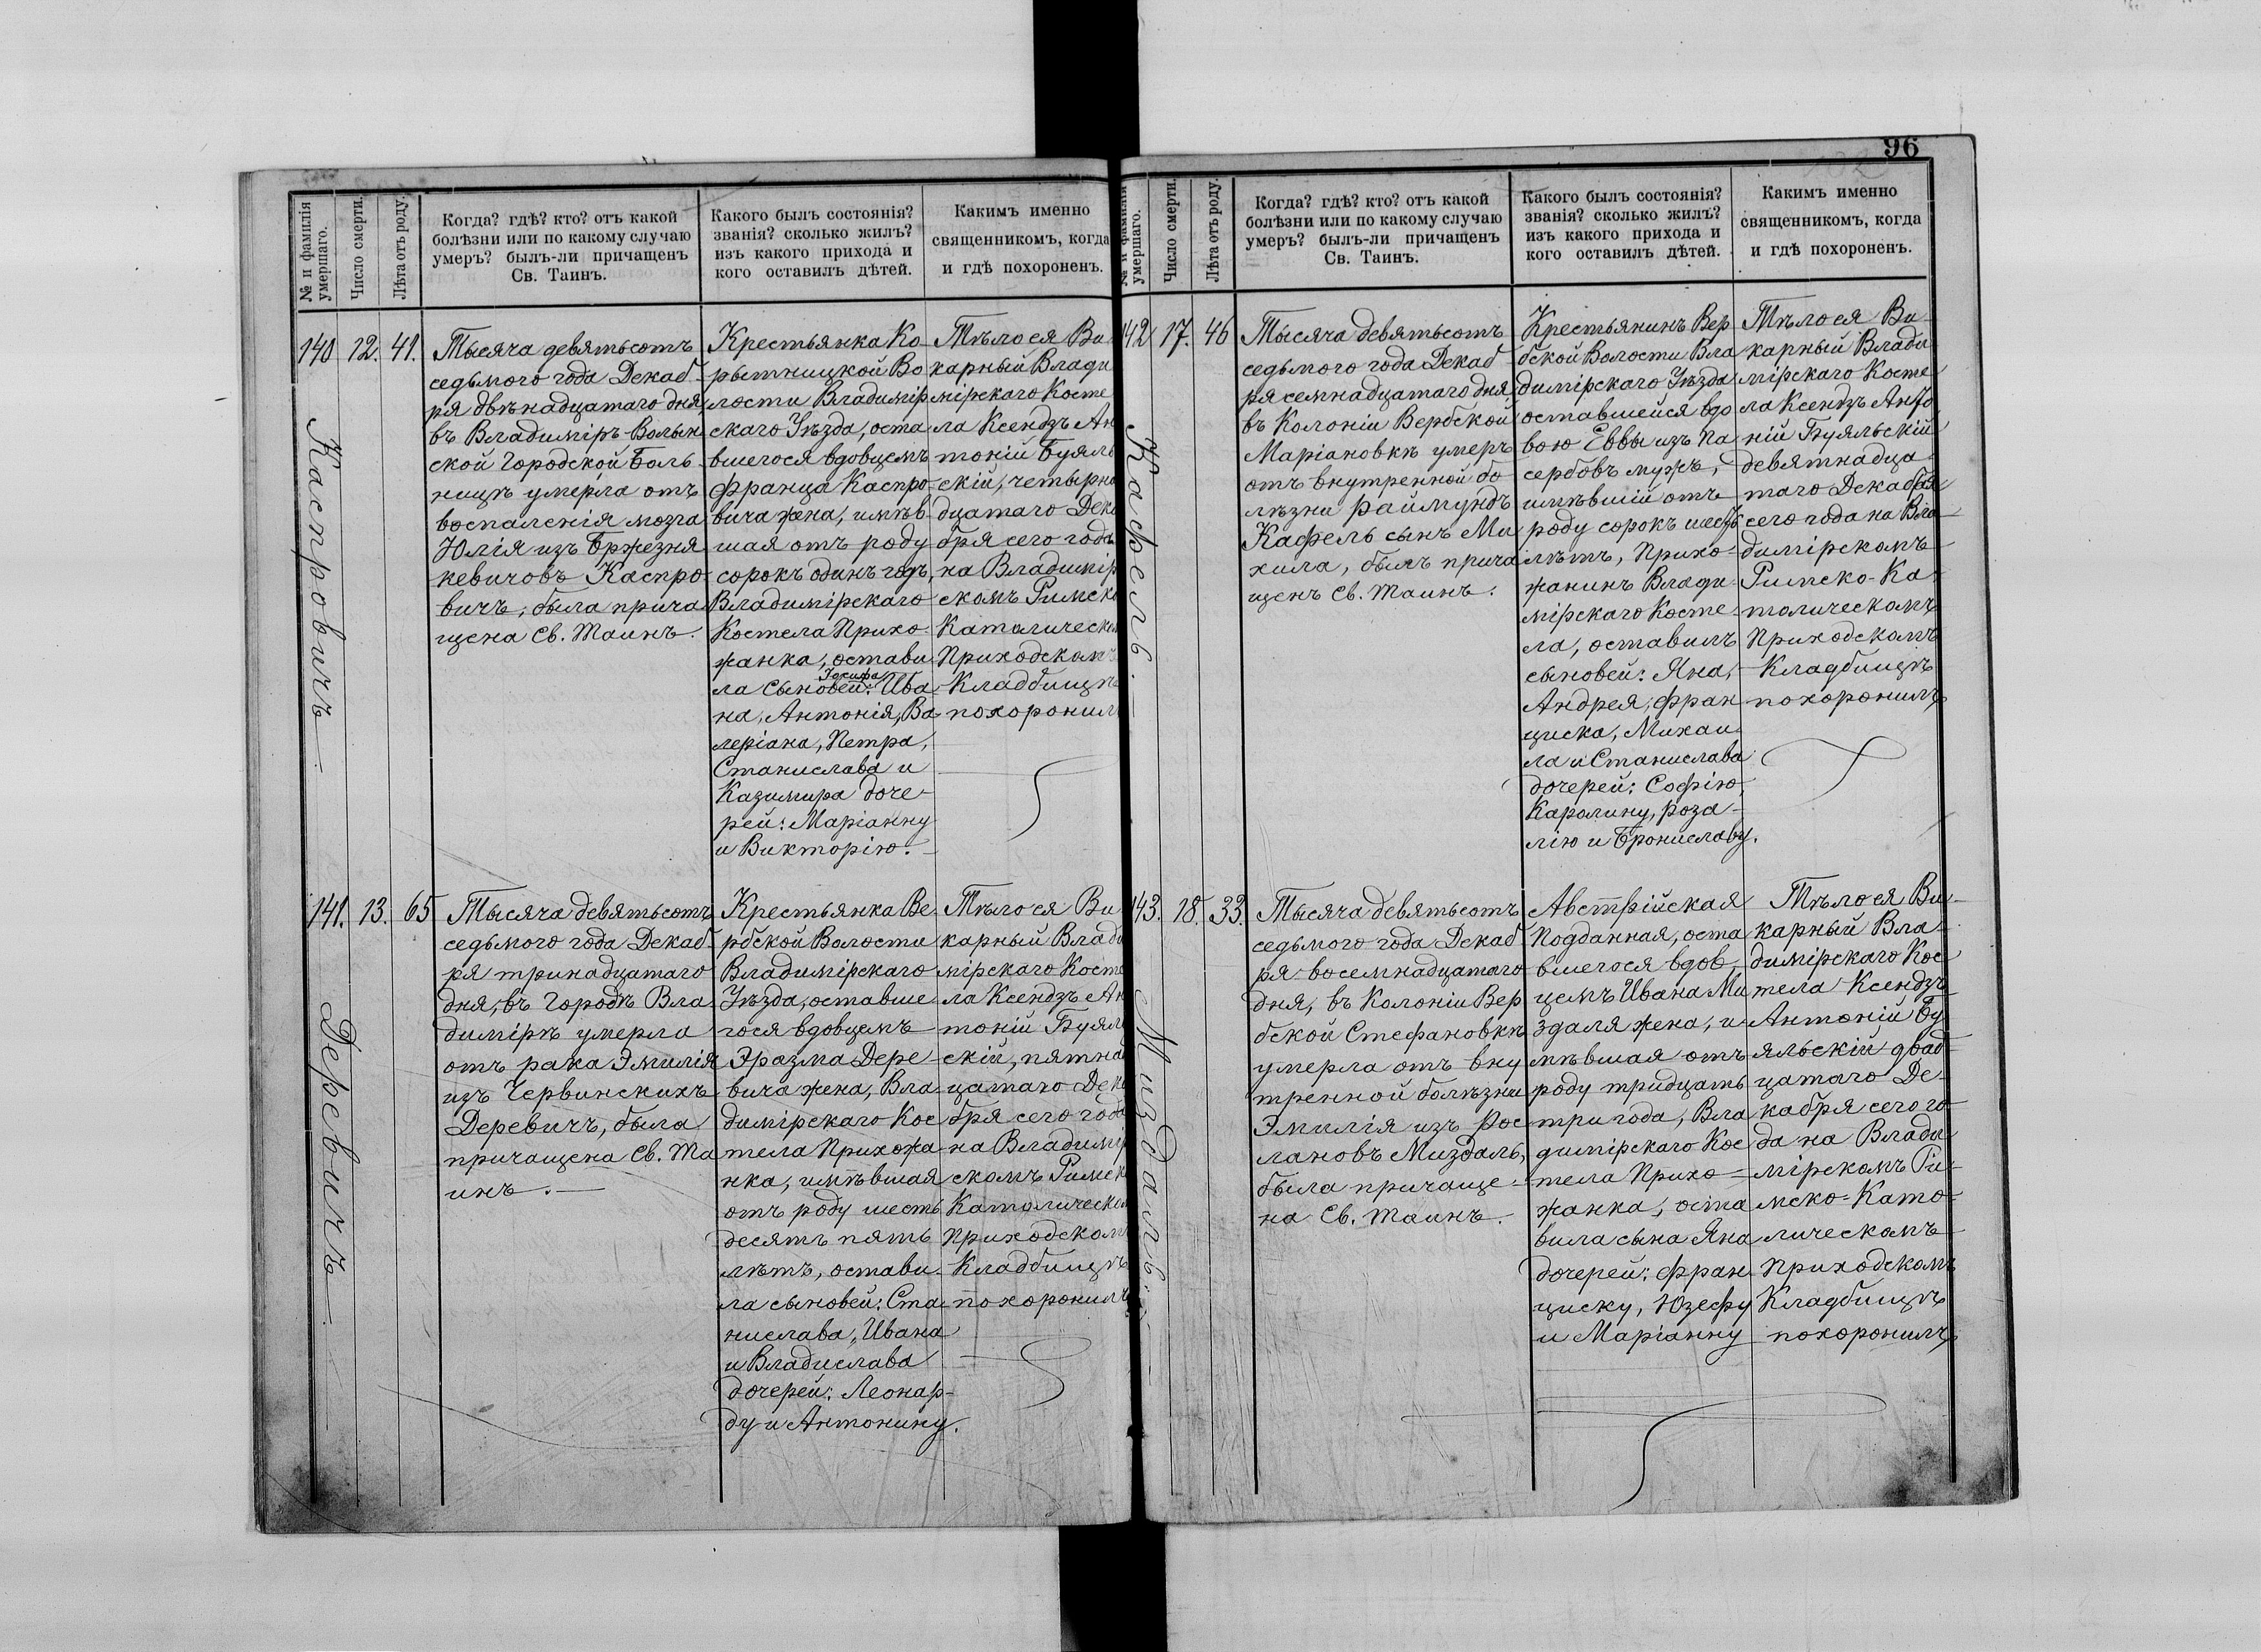 96
№ и фамилія
умершаго.
Число смерти.
Лѣта отъ роду.
Когда? гдѣ? кто? отъ какой
болѣзни или по какому случаю
умеръ? былъ-ли причащенъ
Св. Таинъ.
Какого былъ состоянія?
званія? сколько жилъ?
изъ какого прихода и
кого оставилъ дѣтей.
Какимъ именно
священникомъ, когда
и гдѣ похороненъ.
140
Каспровичъ
12.
41.
Тысяча девятьсотъ
седьмого года Декаб-
ря двѣнадцатаго дня,
въ Владиміръ-Волын
ской Городской Боль
ницѣ умерла отъ
воспаленія мозга
Юлія изъ Бржезня
кевичовъ Каспро-
вичъ, была прича
щена Св. Таинъ.
Крестьянка Ко-
рытницкой Во
лости Владимір
скаго Уѣзда, оста
вшегося вдовцемъ
Франца Каспро-
вича жена, имѣв-
шая отъ роду
сорокъ одинъ годъ,
Владимірскаго
Костела Прихо-
жанка, остави
Іосифа
ла сыновей: Ива
на, Антонія, Ва
леріана, Петра,
Станислава и
Казимира доче-
рей: Маріанну
и Викторію.
Тѣло ея Ви
карный Влади
мірскаго Косте
ла Ксендзъ Ан
тоній Буяль
скій, четырна
дцатаго Дека
бря сего года
на Владимір
скомъ Римско
Католическом
Приходскомъ
Кладбищѣ
похоронил
141.
Деревичъ
13.
65
Тысяча девятьсотъ
седьмого года Декаб-
ря тринадцатаго
дня, въ Городѣ Вла
димірѣ умерла
отъ рака Эмилія
изъ Червинскихъ
Деревичъ, была
причащена Св. Та
инъ.
Крестьянка Ве-
рбской Волости
Владимірскаго
Уѣзда, оставше
гося вдовцемъ
Эразма Дере-
вича жена, Вла-
димірскаго Кос
тела Прихожа
нка, имѣвшая
отъ роду шесть
десятъ пять
лѣтъ, остави-
ла сыновей: Ста
нислава, Ивана
и Владислава
дочерей: Леонар-
ду и Антонину.
Тѣло ея Ви
карный Влади
мірскаго Косте
ла Ксендзъ Ан
тоній Буял
скій, пятнад
цатаго Дека
бря сего года
на Владимір
скомъ Римск
Католическо
Приходском
Кладбищѣ
похоронилъ
№ и фамилія
умершаго.
Число смерти.
Лѣта отъ роду.
Когда? гдѣ? кто? отъ какой
болѣзни или по какому случаю
умеръ? былъ-ли причащенъ
Св. Таинъ.
Какого былъ состоянія?
званія? сколько жилъ?
изъ какого прихода и
кого оставилъ дѣтей.
Какимъ именно
священникомъ, когда
и гдѣ похороненъ.
142
Кафель.
17.
46
Тысяча девятьсотъ
седьмого года Декаб
ря семнадцатаго дня,
въ Колоніи Вербской
Маріановкѣ умеръ
отъ внутренной бо
лѣзни Раймундъ
Кафель сынъ Ми
хила, былъ прича
щенъ Св. Таинъ.
Крестьянинъ Вер
бской Волости Вла
димірскаго Уѣзда
оставшейся вдо
вою Еввы изъ Па
сербовъ мужъ,
имѣвшій отъ
роду сорокъ шесть
лѣтъ, Прихо-
жанинъ Влади-
мірскаго Косте-
ла, оставилъ
сыновей: Яна,
Андрея, Фран
циска, Михаи
ла и Станислава
дочерей: Софію,
Каролину, Роза-
лію и Брониславу.
Тѣло ея Ви-
карный Влади
мірскаго Косте
ла Ксендзъ Анто
ній Буяльскій
девятнадца
таго Декабря
сего года на Вла
димірскомъ
Римско-Ка
толическомъ
Приходскомъ
Кладбищѣ
похоронилъ
143.
Миздаль.
18.
33.
Тысяча девятьсотъ
седьмого года Декаб
ря восемнадцатаго
дня, въ Колоніи Вер
бской Стефановкѣ
умерла отъ вну
тренной болѣзни
Эмилія изъ Рос
лановъ Миздаль,
была причаще-
на Св. Таинъ.
Австрійская
Подданная, оста
вшегося вдов,
цемъ Ивана Ми
здаля жена, и-
мѣвшая отъ
роду тридцать
три года, Вла
димірскаго Кос
тела Прихо-
жанка, оста
вила сына Яна
дочерей: Фран
циску, Юзефу
и Маріанну
Тѣло ея Ви-
карный Вла-
димірскаго Кос
тела Ксендзъ
Антоній Бу
яльскій двад
цатаго Де-
кабря сего го
да на Влади
мірскомъ Ри-
мско-Като-
лическомъ
Приходскомъ
Кладбищѣ
похоронилъ